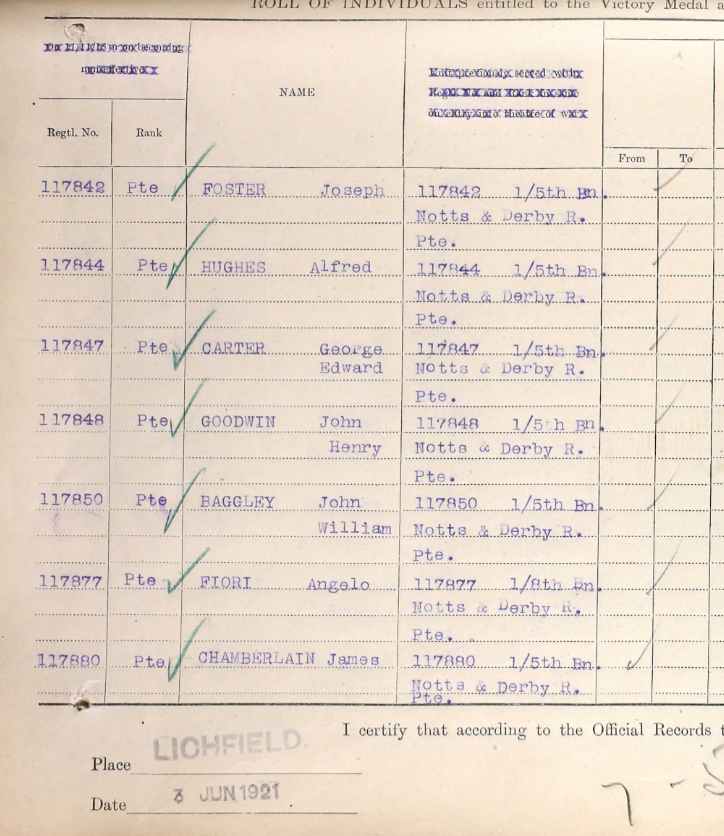 ROLL OF INDIVIDUALS entitled to the Victory Medal a
NAME
Regtl. No. Rank From To
117842 Pte FOSTER Joseph 117842 1/5th Bn.
Notts & Derby R.
Pte.
117844 Pte HUGHES Alfred 117844 1/5th Bn.
Notts & Derby R.
Pte.
117847 Pte CARTER George 117847 1/5th Bn.
Edward Notts & Derby R.
Pte.
117848 Pte GOODWIN John 117848 1/5th Bn.
Henry Notts & Derby R.
Pte.
117850 Pte BAGGLEY John 117850 1/5th Bn.
William Notts & Derby R.
Pte.
117877 Pte FIORI Angelo 117877 1/8th Bn.
Notts & Derby R.
Pte.
117880 Pte CHAMBERLAIN James 117880 1/5th Bn.
Notts & Derby R.
Pte.
I certify that according to the Official Records t
Place LICHFIELD.
Date 3 JUN 1921